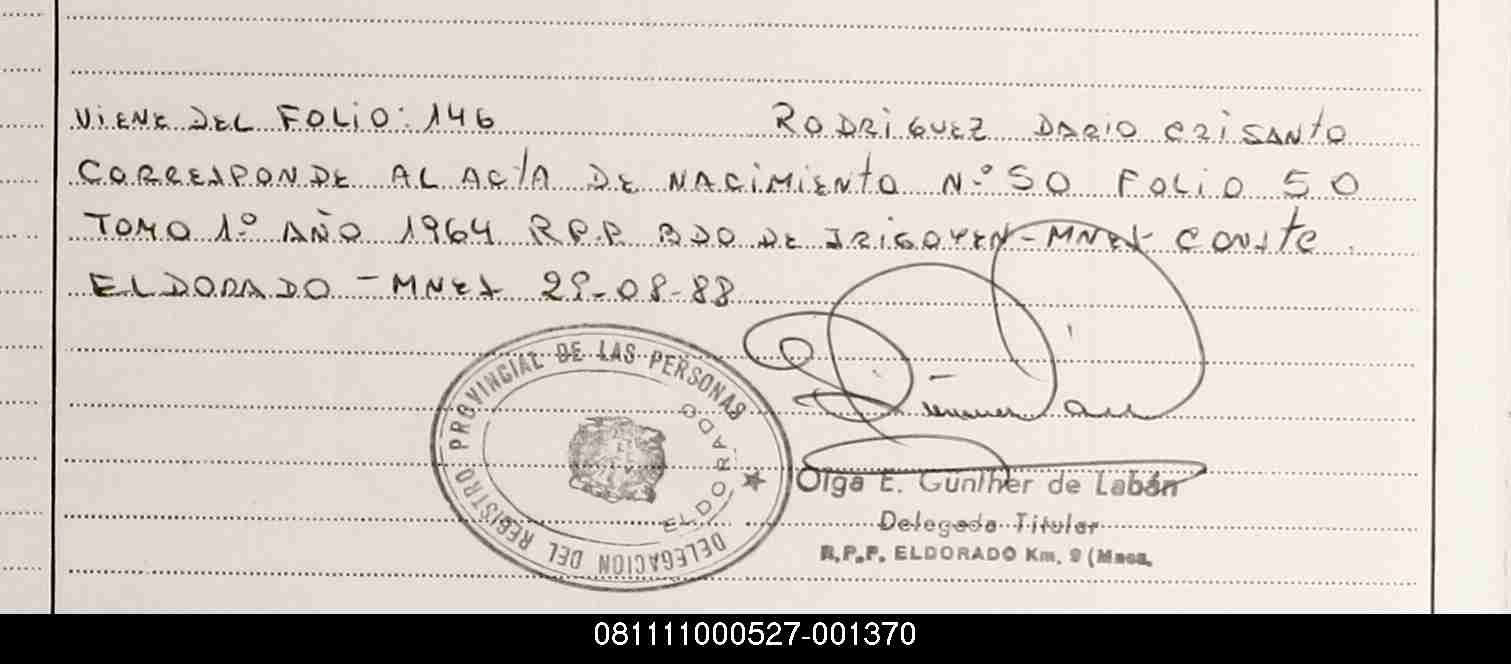 VIENE DEL FOLIO: 146 RODRIGUEZ DARIO CRISANTO
CORRESPONDE AL ACTA DE NACIMIENTO N.º 50 FOLIO 50
TOMO 1.º AÑO 1964 R.P.P. BDO DE IRIGOYEN-MNES CONSTE.
ELDORADO - MNES 29-08-88
DELEGACION DEL REGISTRO PROVINCIAL DE LAS PERSONAS
ELDORADO
Olga E. Gunther de Labán
Delegada Titular
R.P.P. ELDORADO Km. 9 (Mnes.
081111000527-001370